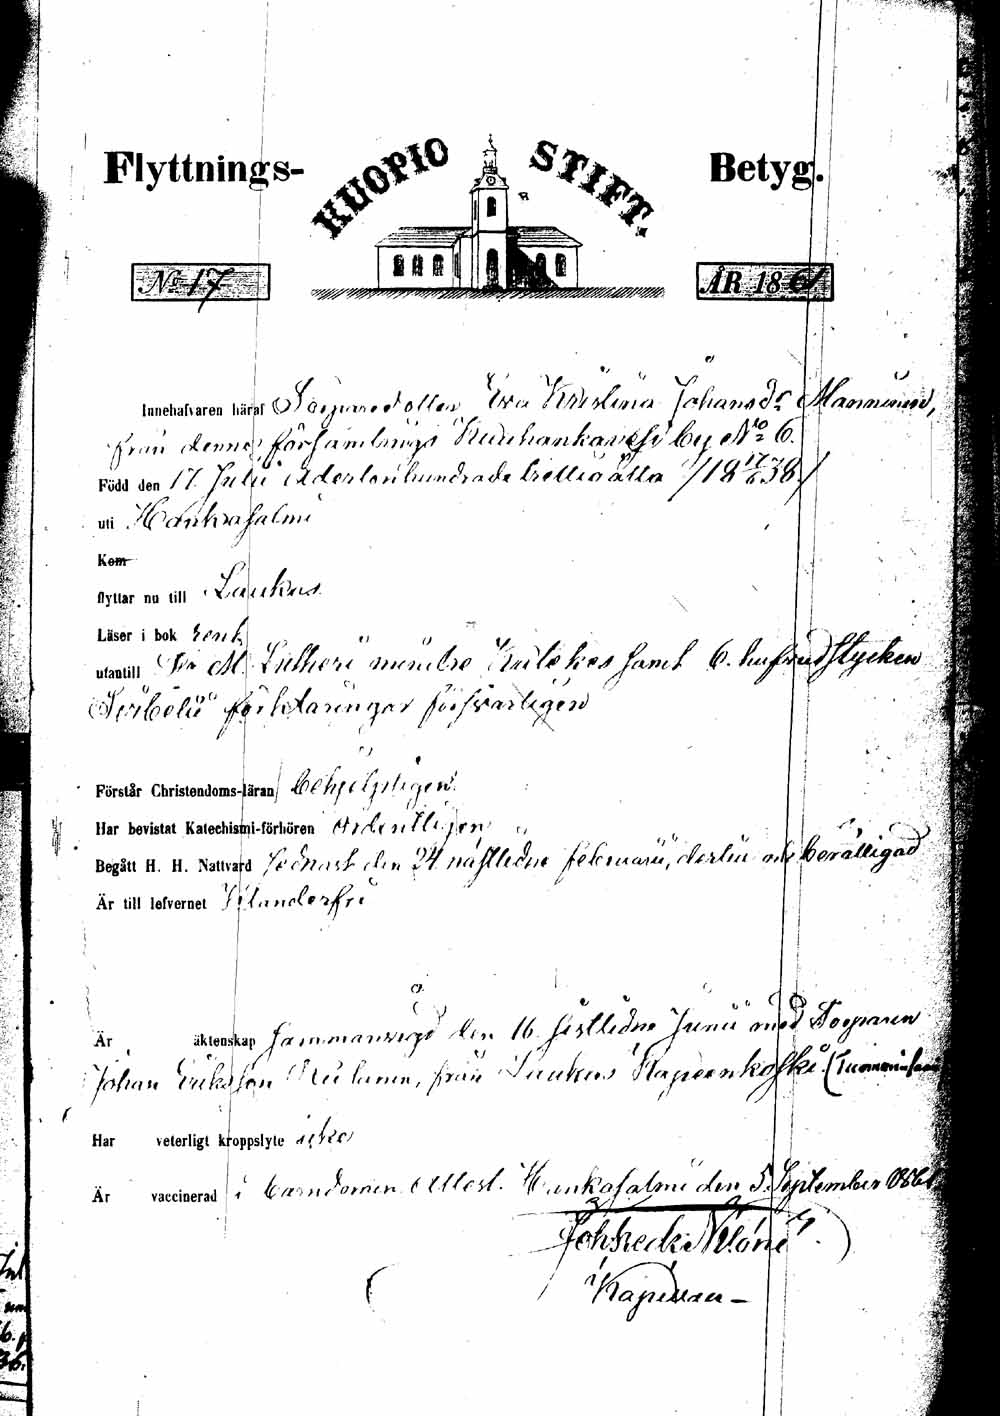 Flyttnings- KUOPIO STIFT. Betyg.
No 17 ÅR 1861
Innehafvaren häraf Torparedottren Eva Kristina Johansdr Manninen,
från denne församlings by No 6.
Född den 17 Julii adertonhundradetrettioåtta /18 17/6 38/
uti Hankasalmi
Kom
flyttar nu till Laukas
Läser i bok rent
utantill Dr M. Lutheri mindre Katekes samt 6. hufvudstycken
förklaringar försvarligen
Förstår Christendoms-läran behjelpligen
Har bevistat Katechismi-förhören ordentligen
Begått H. H. Nattvard sednast den 24 nästledne februarii, dertill nu berättigad
Är till lefvernet klanderfri
Är äktenskap sammanvigd den 16 sistledne Junii med Torparen
Johan Eriksson från Laukas
Har veterligt kroppslyte icke
Är vaccinerad i barndomen Attest. Hankasalmi den 5 September 1861
Joh Fredk
Kapellan